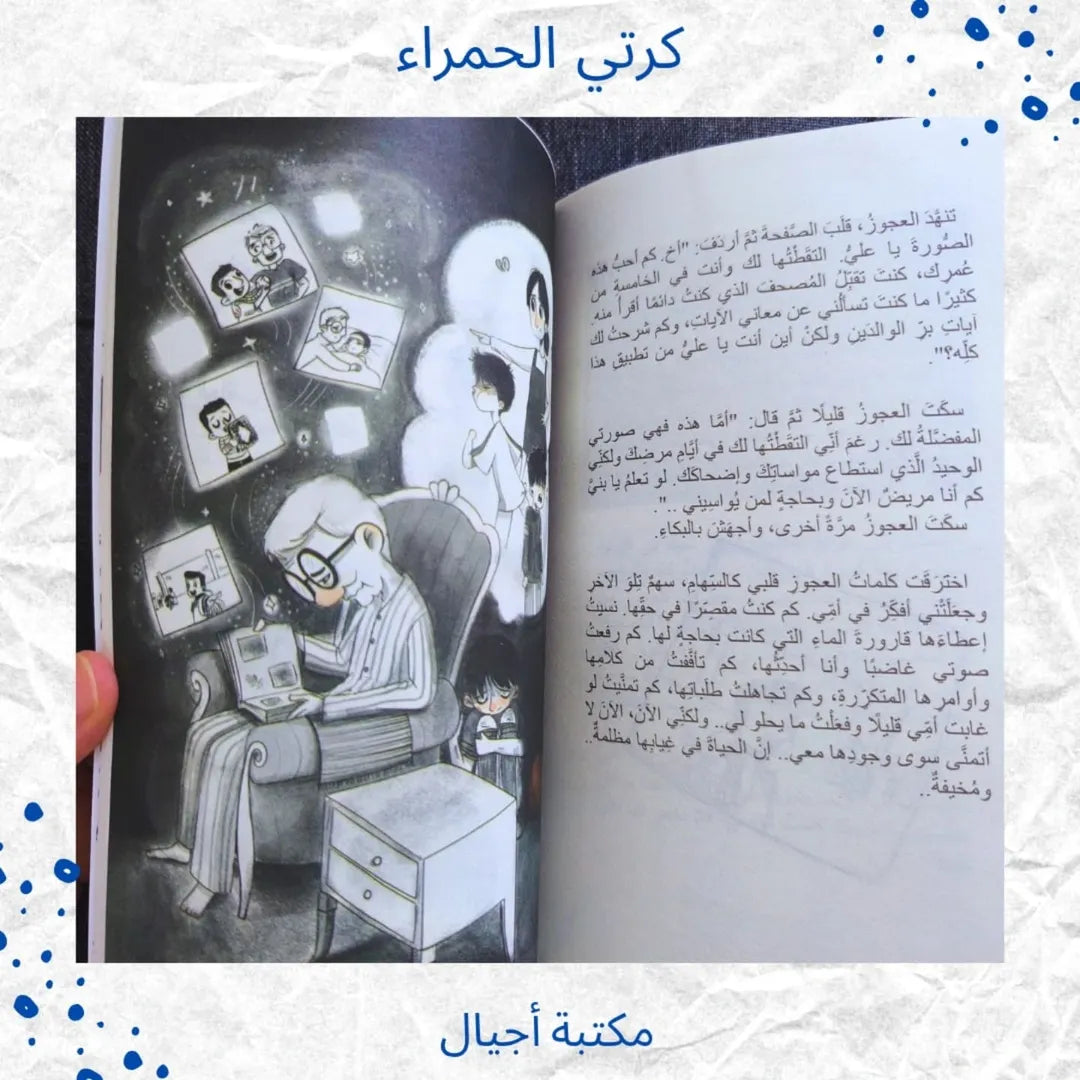 كرتي الحمراء
تنهَّدَ العجوزُ، قلَبَ الصَّفحةَ ثمَّ أردَفَ: "آخ. كم أحبُّ هذه
الصُّورةَ يا عليُّ. التقَطْتُها لك وأنت في الخامسةِ من
عُمرِك، كنتَ تقبِّلُ المُصحفَ الذي كنتُ دائمًا أقرأ منه.
كثيرًا ما كنتَ تسألُني عن معاني الآياتِ، وكم شرحتُ لك
آياتِ برِّ الوالدَينِ ولكنْ أين أنت يا عليُّ من تطبيقِ هذا
كلِّه؟".
سكَتَ العجوزُ قليلًا ثمَّ قال: "أمَّا هذه فهي صورتي
المفضَّلةُ لك. رغمَ أنِّي التقَطْتُها لك في أيَّامِ مرضِكَ ولكنِّي
الوحيدُ الَّذي استطاع مواساتِكَ وإضحاكَك. لو تعلمُ يا بنيَّ
كم أنا مريضٌ الآنَ وبحاجةٍ لمن يُواسِيني ..".
سكَتَ العجوزُ مرَّةً أخرى، وأجهَشَ بالبكاءِ.
اخترَقَت كلماتُ العجوزِ قلبي كالسِّهامِ، سهمٌ تِلوَ الآخرِ
وجعَلَتْني أفكِّرُ في أمِّي. كم كنتُ مقصِّرًا في حقِّها. نسيتُ
إعطاءَها قارورةَ الماءِ التي كانت بحاجةٍ لها. كم رفعتُ
صوتي غاضبًا وأنا أحدِّثُها، كم تأفَّفتُ من كلامِها
وأوامرِها المتكرِّرةِ، وكم تجاهلتُ طلَباتِها، كم تمنَّيتُ لو
غابت أمِّي قليلًا وفعَلْتُ ما يحلو لي.. ولكنِّي الآنَ، الآنَ لا
أتمنَّى سوى وجودِها معي.. إنَّ الحياةَ في غيابِها مظلمةٌ..
ومُخيفةٌ..
مكتبة أجيال